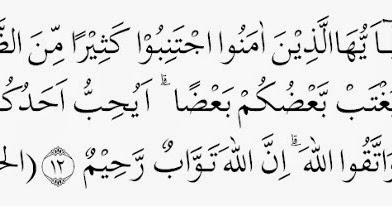 يٰٓاَيُّهَا الَّذِيْنَ اٰمَنُوا اجْتَنِبُوْا كَثِيْرًا مِّنَ
يَغْتَبْ بَّعْضُكُمْ بَعْضًاۗ اَيُحِبُّ اَحَدُكُ
وَاتَّقُوا اللّٰهَ ۗاِنَّ اللّٰهَ تَوَّابٌ رَّحِيْمٌ ١٢ (الح